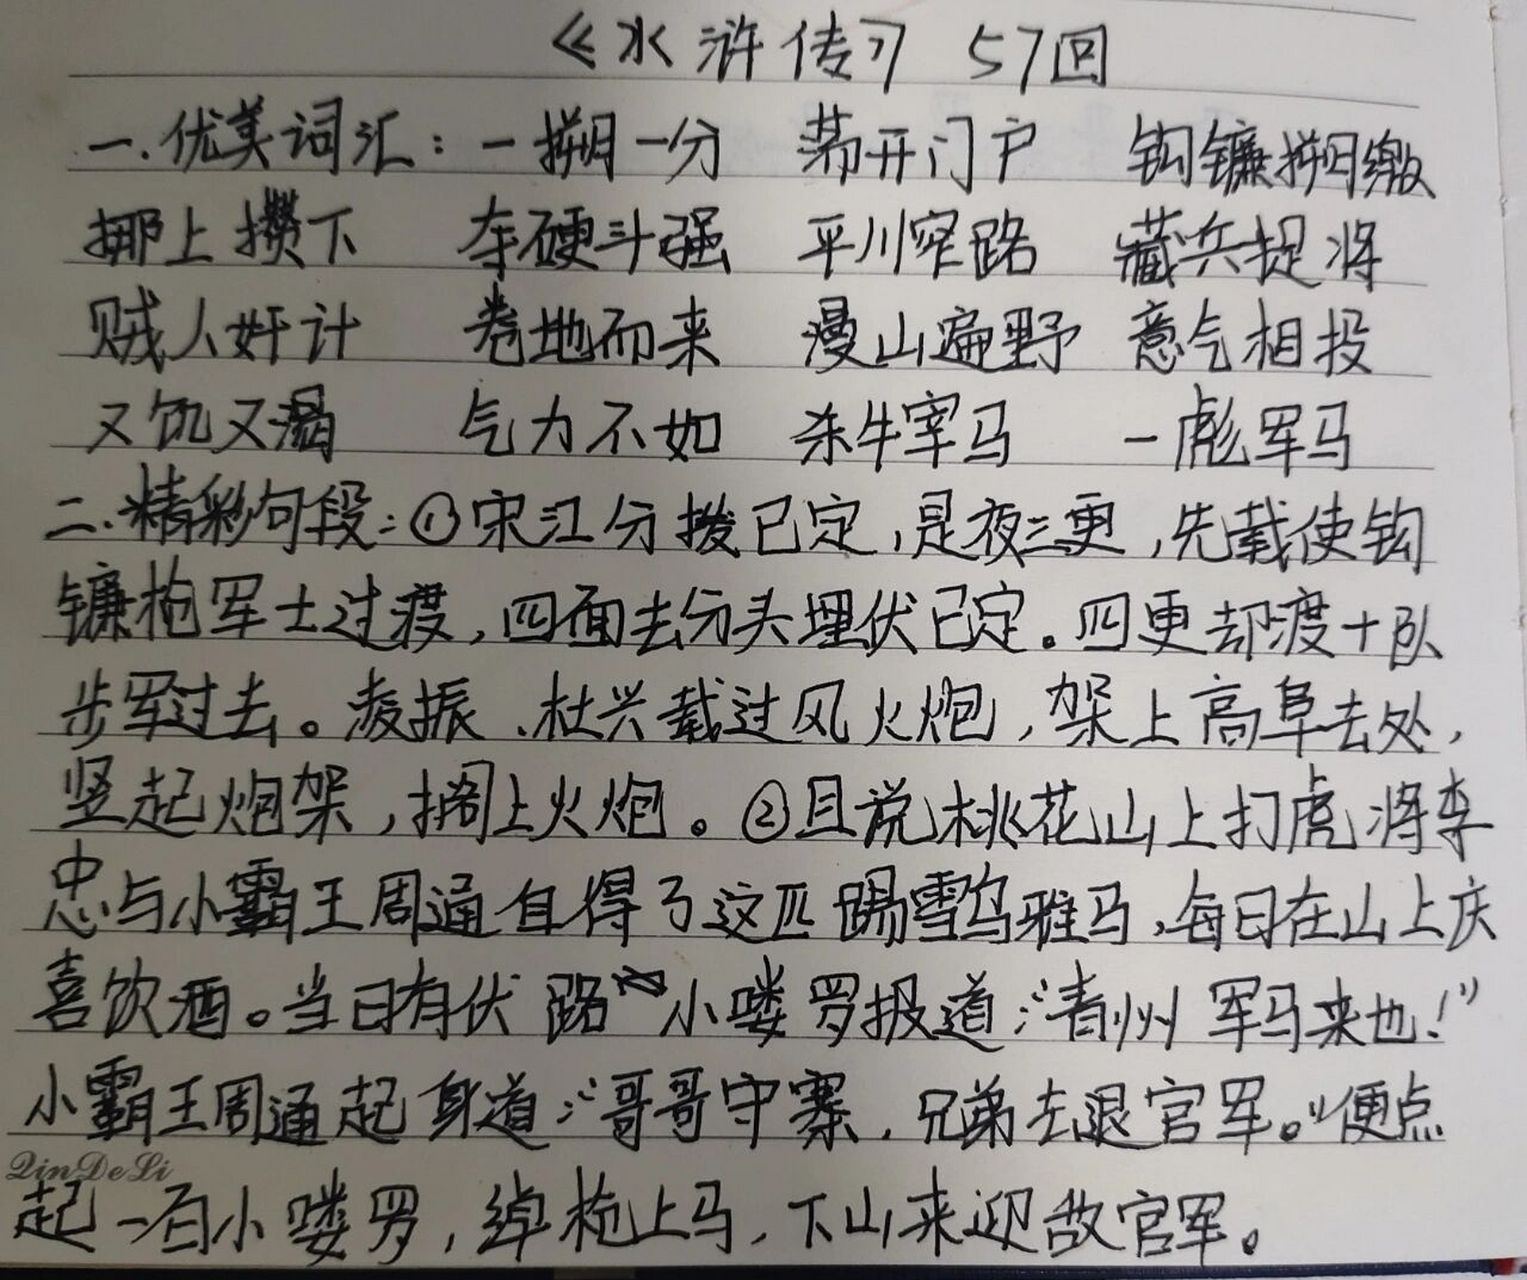 《水浒传》 57回
一.优美词汇：一搠一分 荡开门户 钩镰搠缴
挪上攒下 夺硬斗强 平川窄路 藏兵捉将
贼人奸计 卷地而来 漫山遍野 意气相投
又饥又渴 气力不如 杀牛宰马 一彪军马
二.精彩句段：①宋江分拨已定，是夜三更，先载使钩
镰枪军士过渡，四面去分头埋伏已定。四更却渡十队
步军过去。凌振、杜兴载过风火炮，架上高阜去处，
竖起炮架，搁上火炮。②且说桃花山上打虎将李
忠与小霸王周通自得了这匹踢雪乌骓马，每日在山上庆
喜饮酒。当日有伏路小喽罗报道：“青州军马来也！”
小霸王周通起身道：“哥哥守寨，兄弟去退官军。”便点
QinDeLi
起一百小喽罗，绰枪上马，下山来迎敌官军。